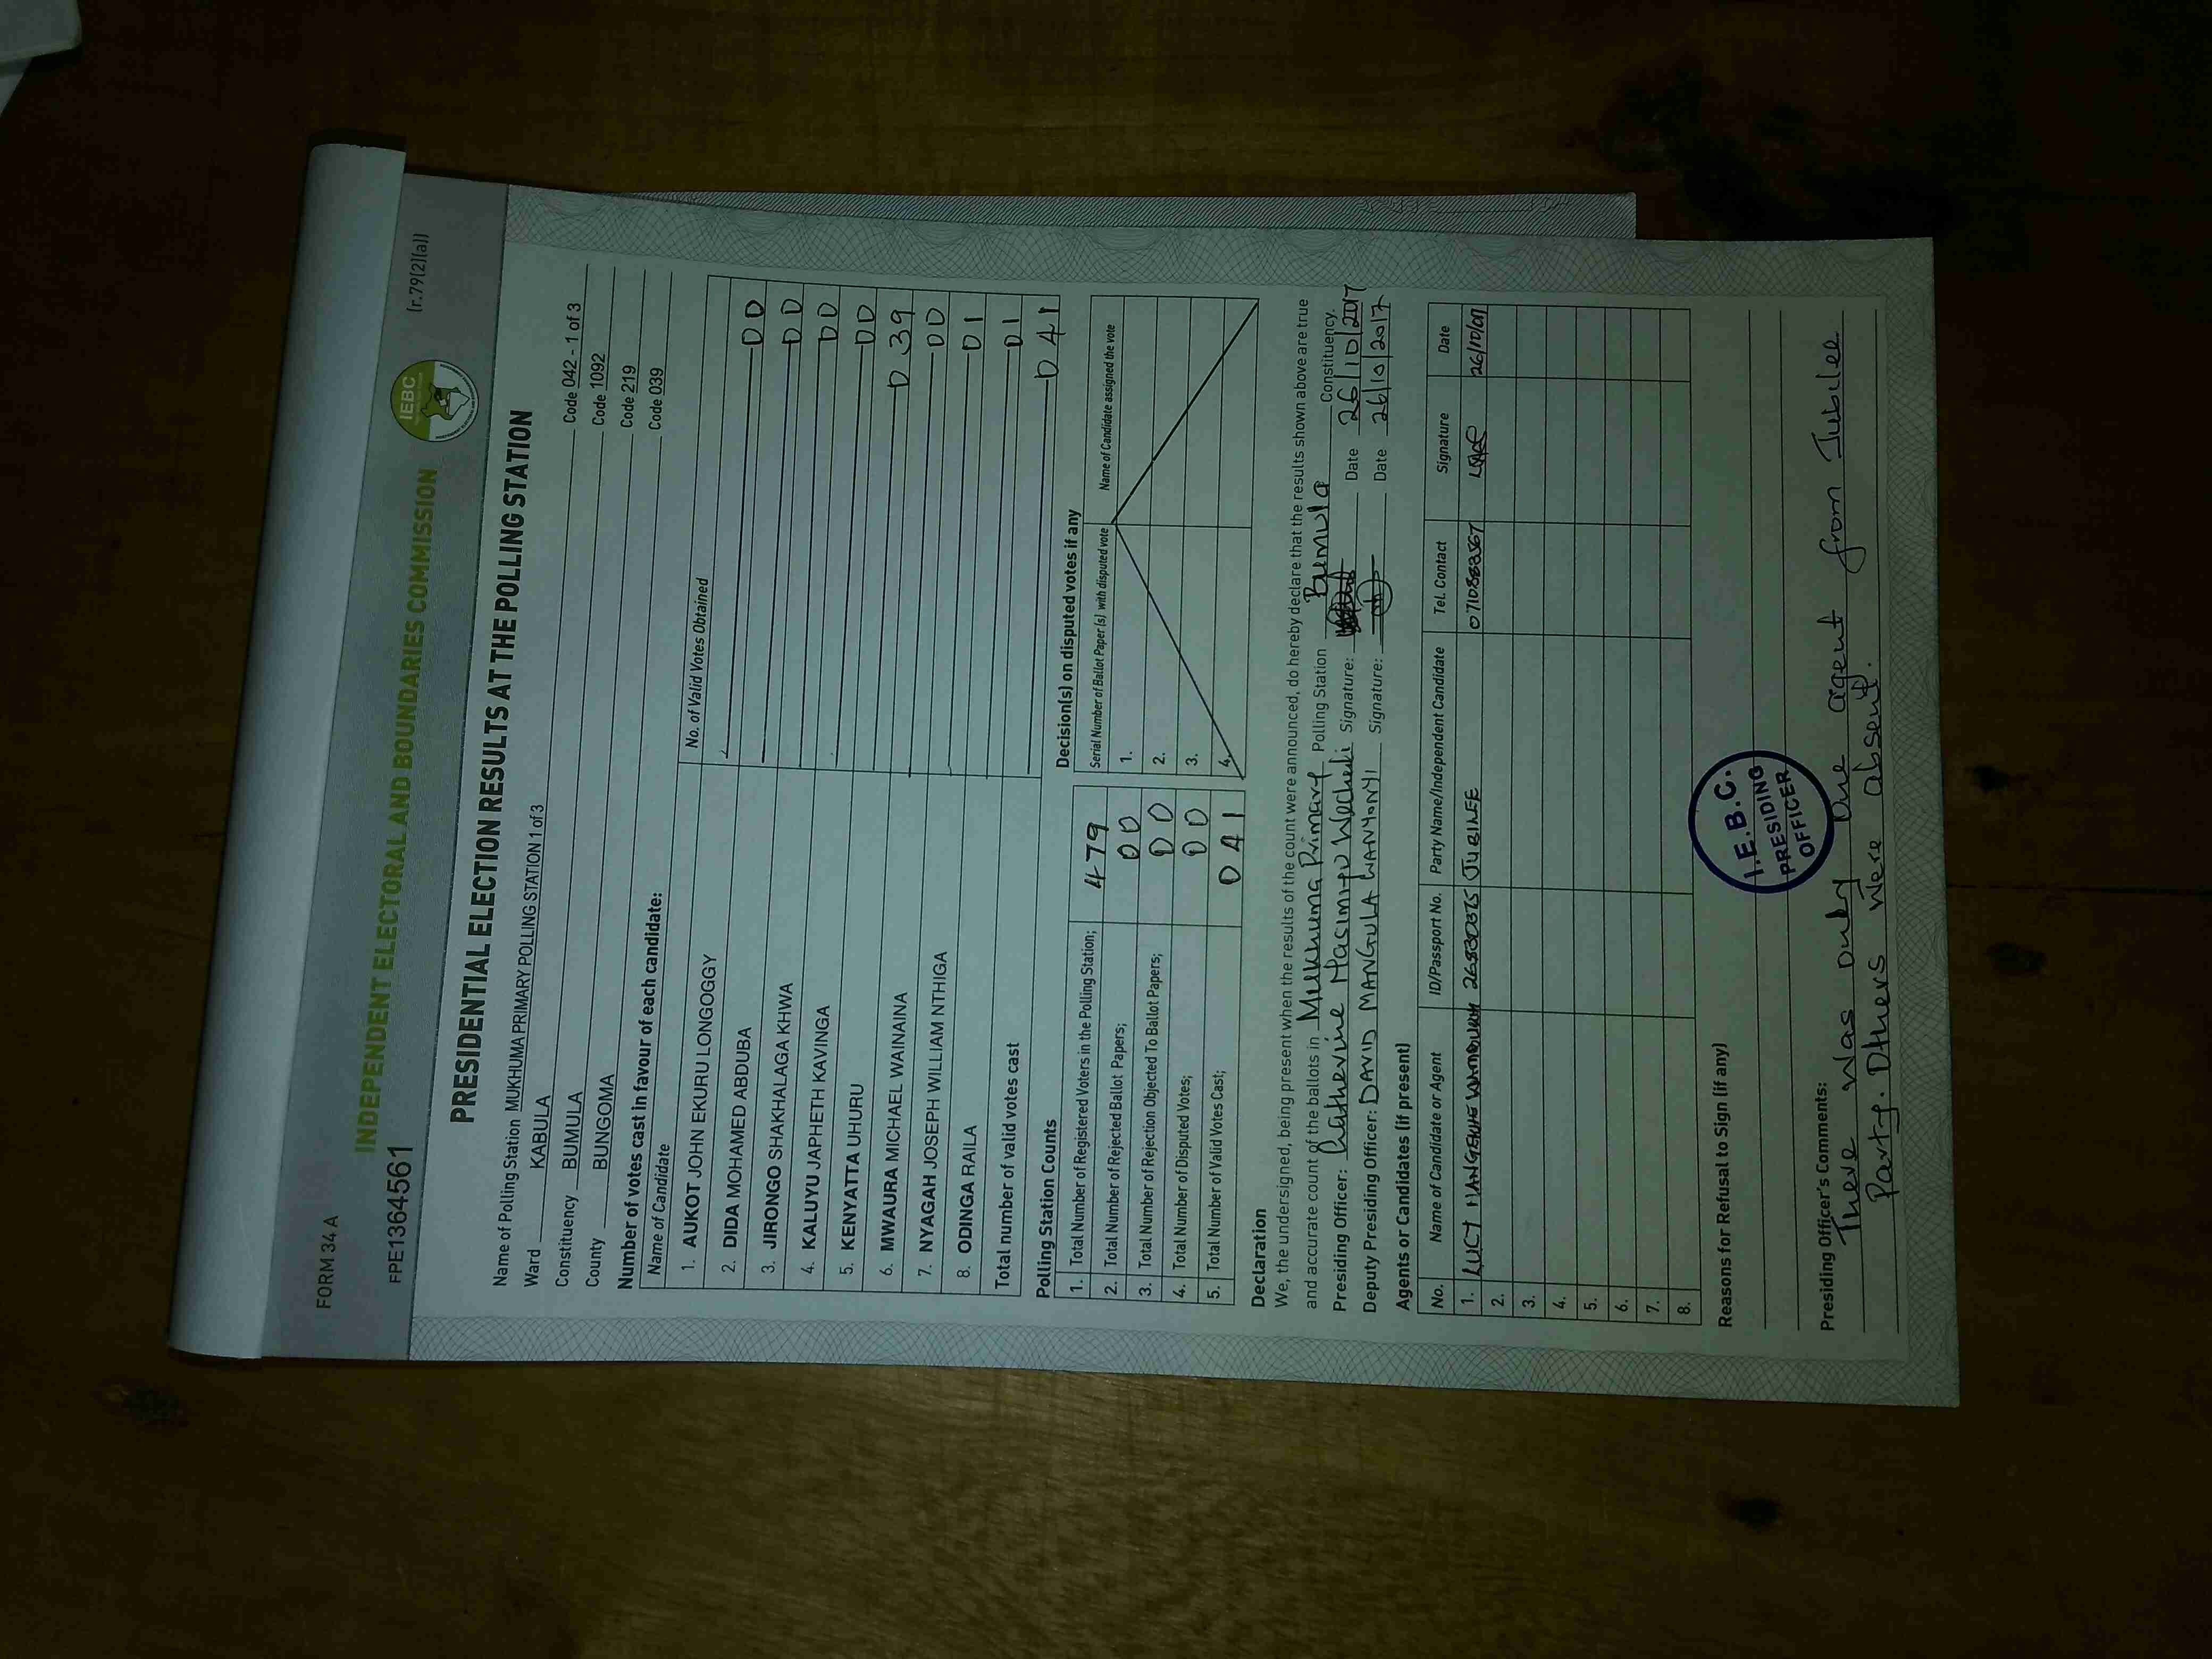 FORM 34 A
(r.79(2)(a))
INDEPENDENT ELECTORAL AND BOUNDARIES COMMISSION
IEBC
FPE1364561
PRESIDENTIAL ELECTION RESULTS AT THE POLLING STATION
Name of Polling Station MUKHUMA PRIMARY POLLING STATION 1 of 3 Code 042 - 1 of 3
Ward KABULA Code 1092
Constituency BUMULA Code 219
County BUNGOMA Code 039
Number of votes cast in favour of each candidate:
Name of Candidate No. of Valid Votes Obtained
1. AUKOT JOHN EKURU LONGOGGY 00
2. DIDA MOHAMED ABDUBA 00
3. JIRONGO SHAKHALAGA KHWA 00
4. KALUYU JAPHETH KAVINGA 00
5. KENYATTA UHURU 039
6. MWAURA MICHAEL WAINAINA 00
7. NYAGAH JOSEPH WILLIAM NTHIGA 01
8. ODINGA RAILA 01
Total number of valid votes cast 041
Polling Station Counts
1. Total Number of Registered Voters in the Polling Station; 479
2. Total Number of Rejected Ballot Papers; 00
3. Total Number of Rejection Objected To Ballot Papers; 00
4. Total Number of Disputed Votes; 00
5. Total Number of Valid Votes Cast; 041
Decision(s) on disputed votes if any
Serial Number of Ballot Paper (s) with disputed vote Name of Candidate assigned the vote
1.
2.
3.
4.
Declaration
We, the undersigned, being present when the results of the count were announced, do hereby declare that the results shown above are true
and accurate count of the ballots in Mukhuma Primary Polling Station Bumula Constituency.
Presiding Officer: Catherine Signature: Date 26/10/2017
Deputy Presiding Officer: DAVID MANGULA WANYONYI Signature: Date 26/10/2017
Agents or Candidates (if present)
No. Name of Candidate or Agent ID/Passport No. Party Name/Independent Candidate Tel. Contact Signature Date
1. JUBILEE 26/10/07
2.
3.
4.
5.
6.
7.
8.
Reasons for Refusal to Sign (if any)
I.E.B.C.
PRESIDING
OFFICER
Presiding Officer's Comments:
There was only one agent from Jubilee
Party. Others were absent.